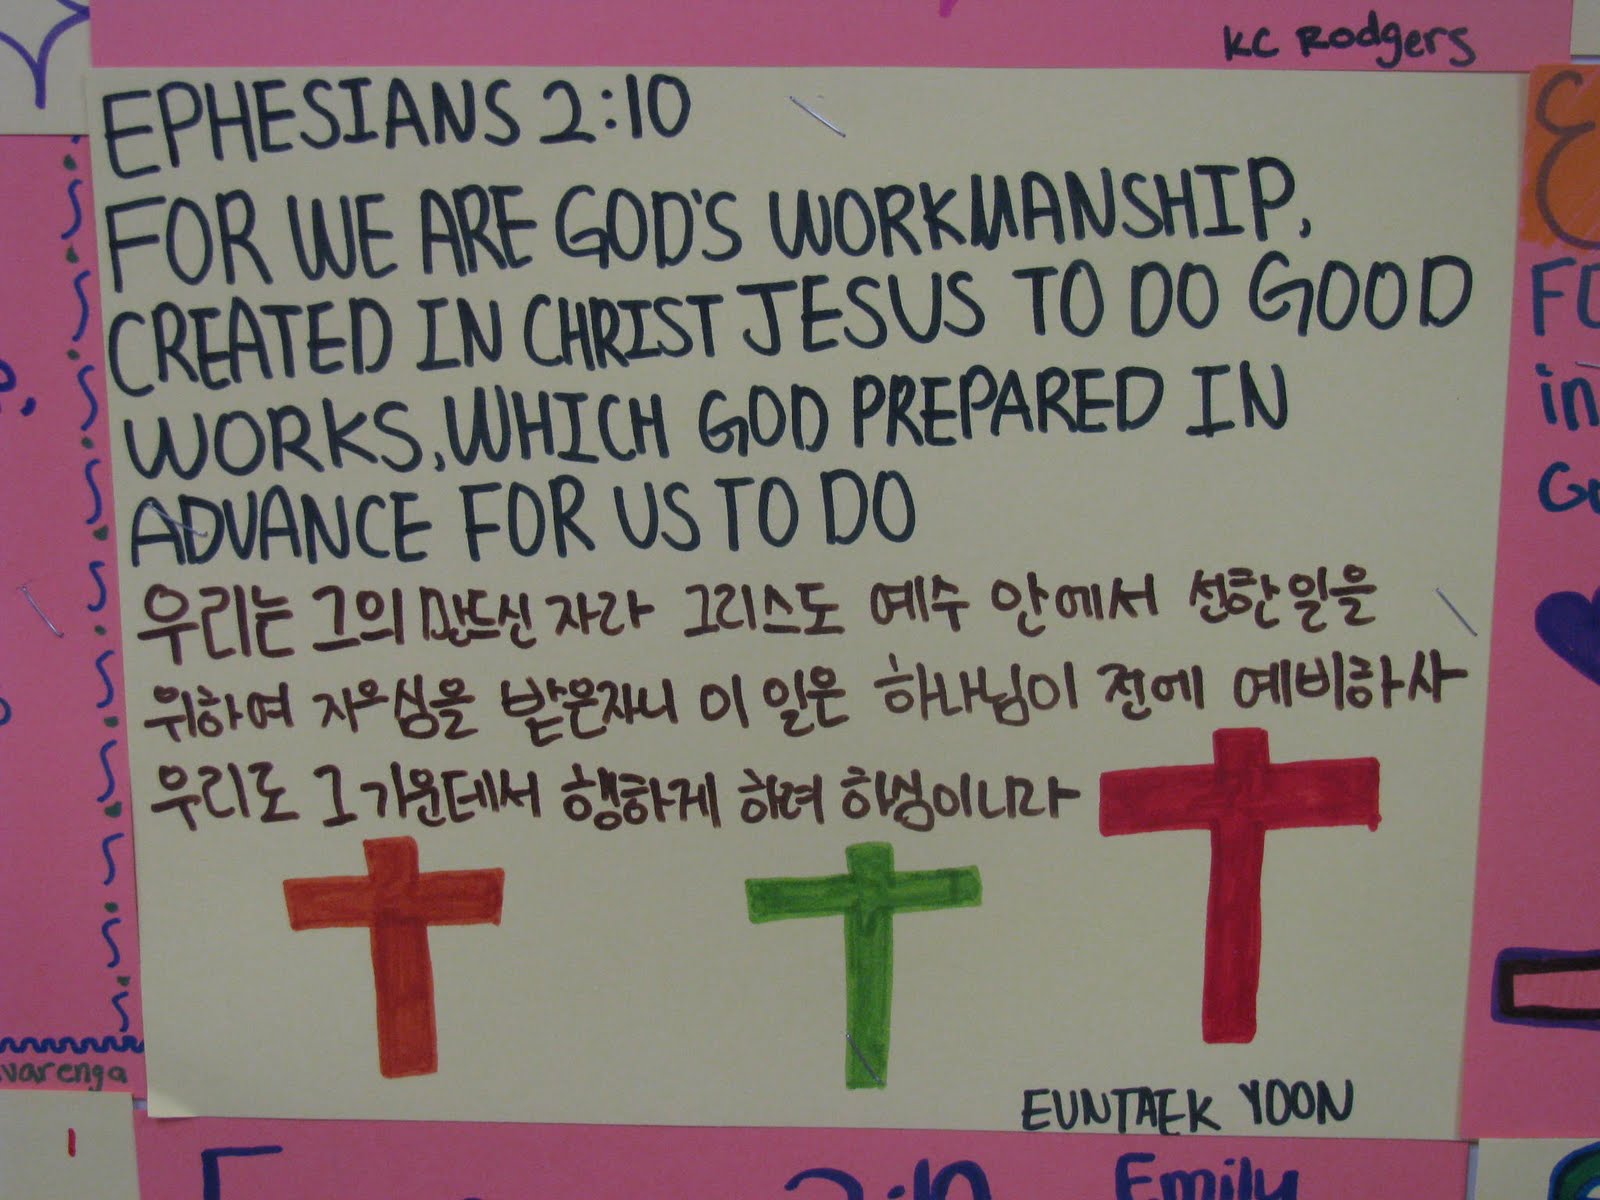 KC Rodgers
EPHESIANS 2:10
FOR WE ARE GOD'S WORKMANSHIP,
CREATED IN CHRIST JESUS TO DO GOOD
WORKS, WHICH GOD PREPARED IN
ADVANCE FOR US TO DO
우리는 그의 만드신 자라 그리스도 예수 안에서 선한 일을
위하여 지으심을 받은자니 이 일은 하나님이 전에 예비하사
우리로 그 가운데서 행하게 하려 하심이니라
EUNTAEK YOON
varenga
in
2:10
Emily